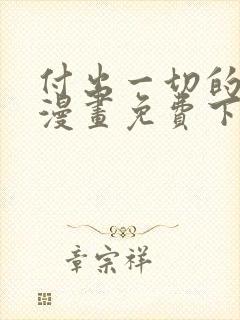 付出一切的
漫畫免費下
章宗祥